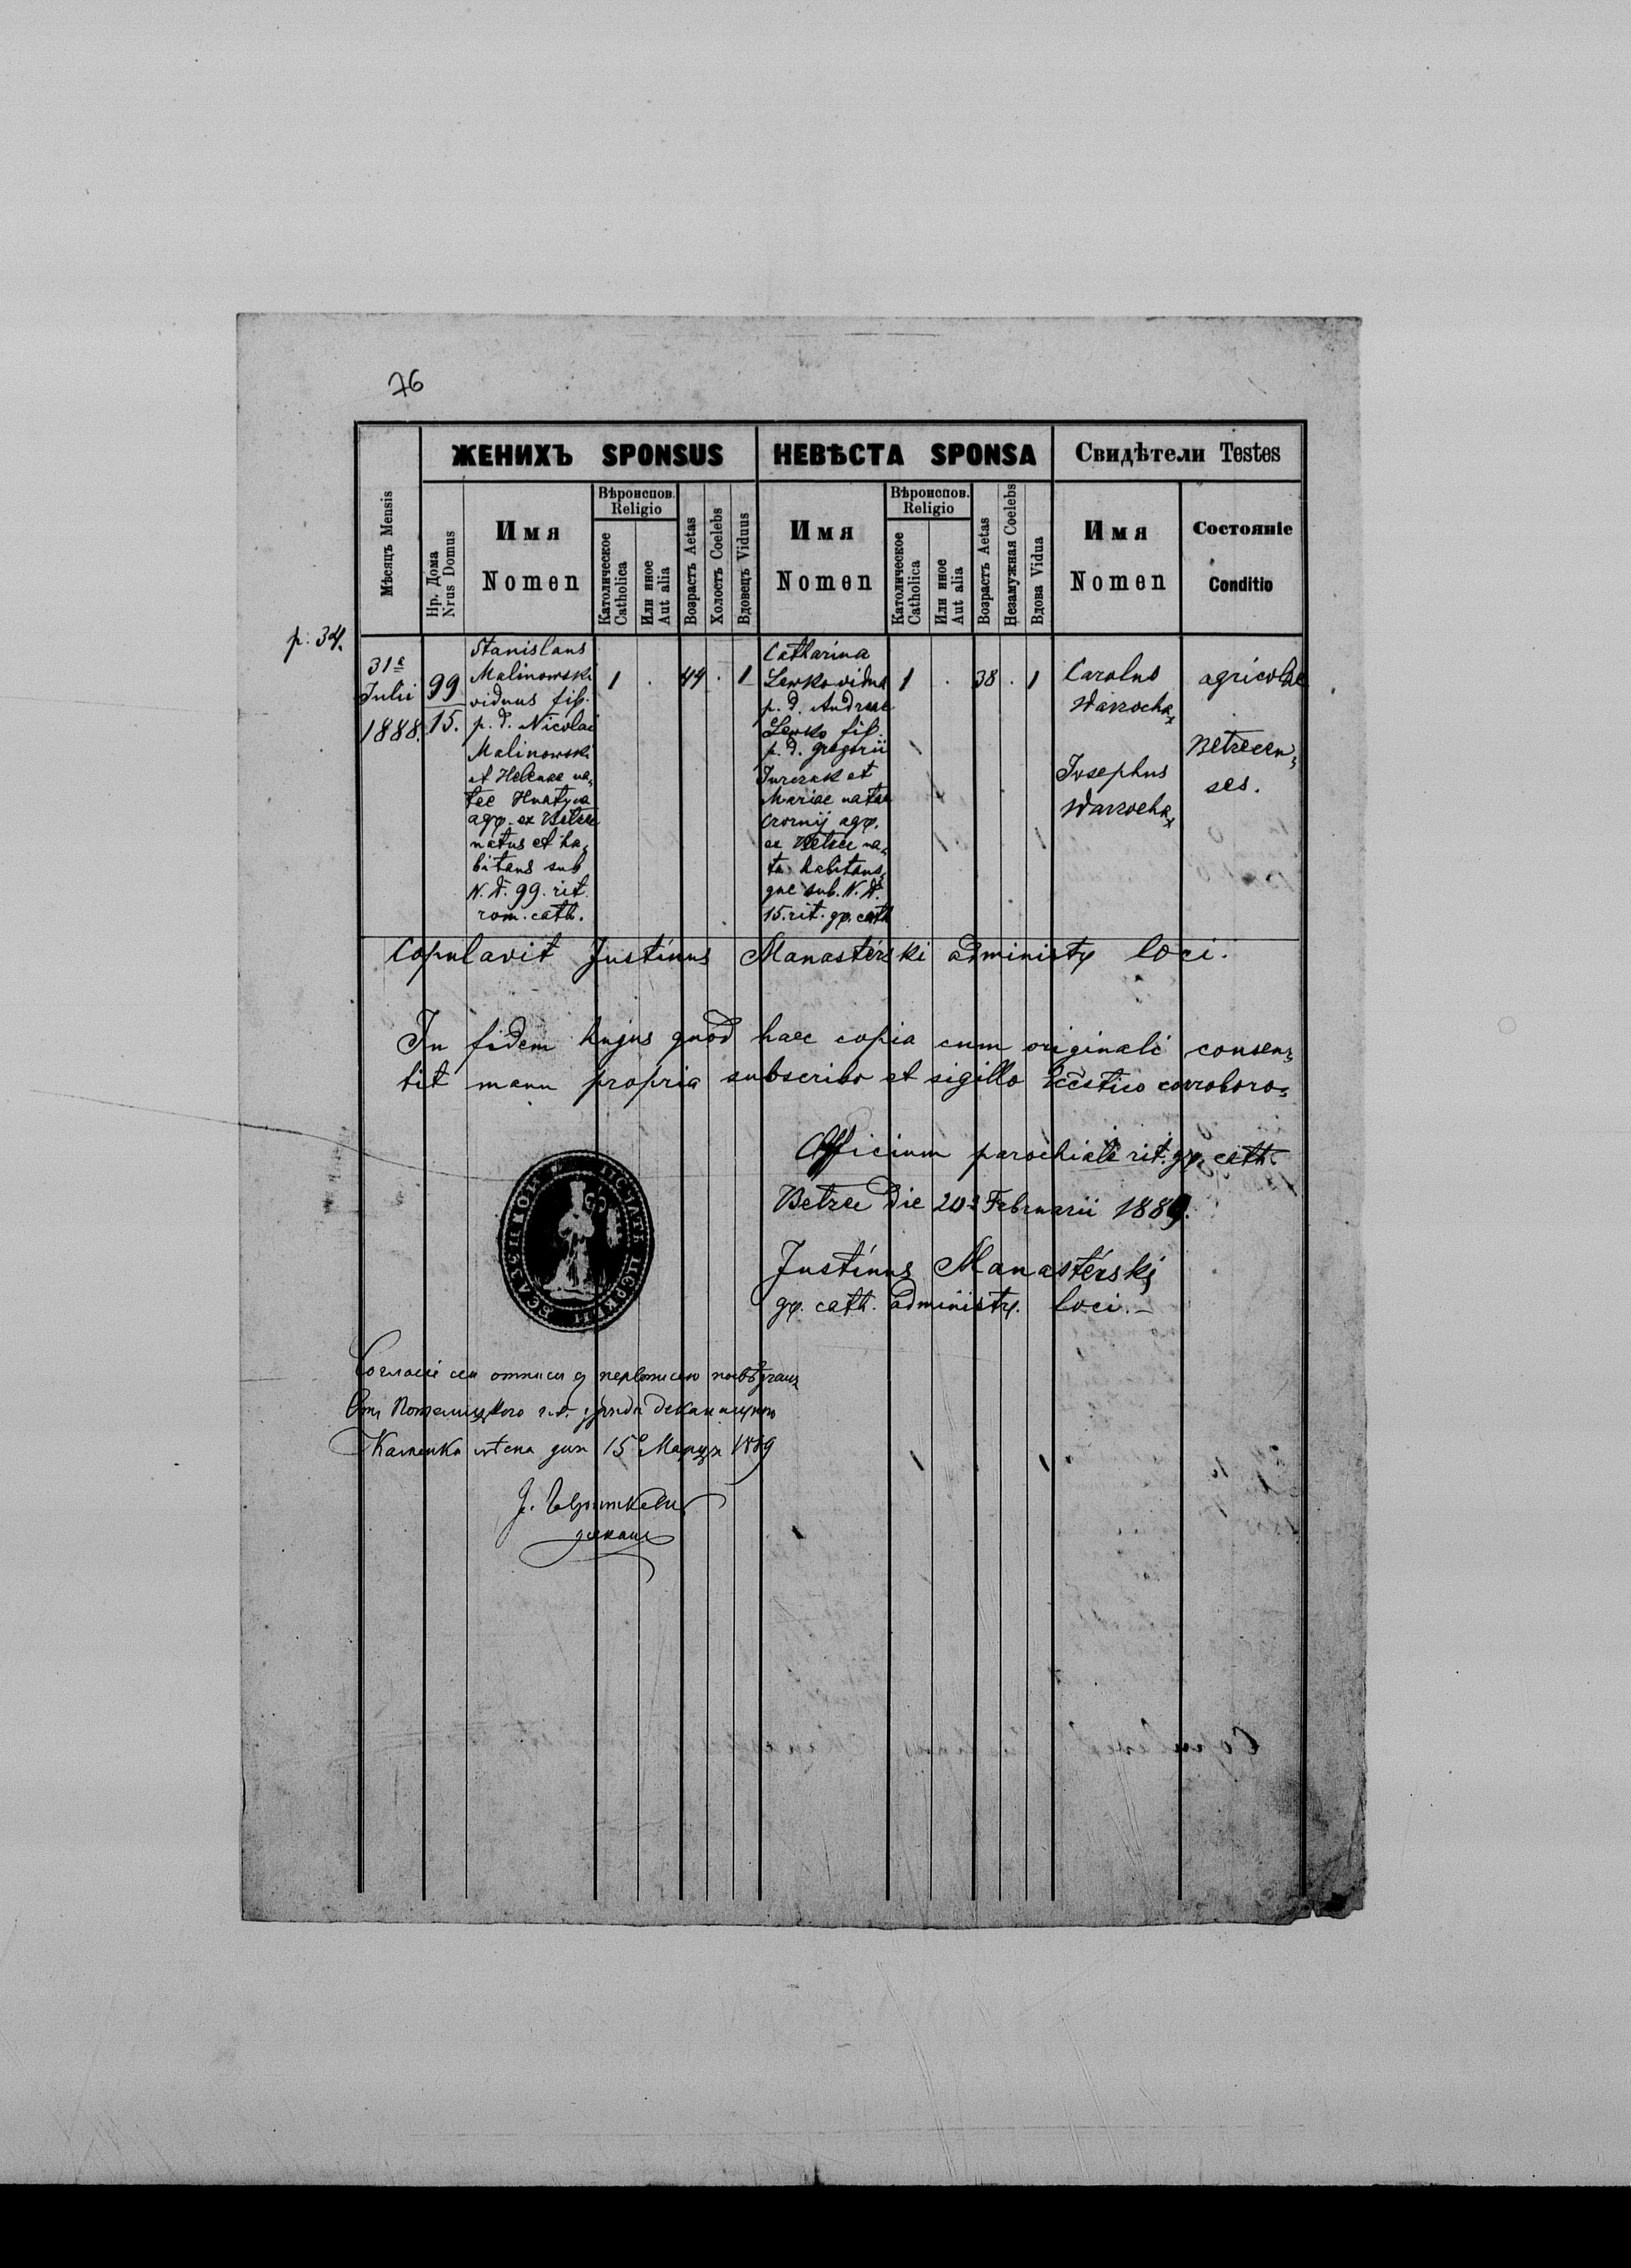 76
ЖЕНИХЪ SPONSUS
НЕВѢСТА SPONSA
Свидѣтели Testes
Мѣсяцъ Mensis
Нр. Дома
Nrus Domus
Имя
Nomen
Вѣроиспов.
Religio
Католическое
Catholica
Или иное
Aut alia
Возрастъ Aetas
Холостъ Coelebs
Вдовецъ Viduus
Имя
Nomen
Вѣроиспов.
Religio
Католическое
Catholica
Или иное
Aut alia
Возрастъ Aetas
Незамужная Coelebs
Вдова Vidua
Имя
Nomen
Состояніе
Conditio
p. 34.
31a
Julii
1888.
99
15.
Stanislaus
Malinowski
viduus fil.
p. d. Nicolai
Malinowski
et Helenae na„
tae Hnatyna
agr. ex Betze
natus et ha„
bitans sub
N. d. 99. rit.
rom. cath.
1 . 44 . 1
Catharina
Lewko vidua
p. d. Andreae
Lewko fil.
p. d. gregorii
Jurczak et
Mariae natae
Czornij agr.
ex Betze na„
ta habitans„
que sub. N. d.
15. rit. gr. cath
1 . 38 . 1
Carolus
Warrocha,
Josephus
Warrocha,
agricolae
Betzecen„
ses.
Copulavit Justinus Manasterski administr loci.
In fidem hujus quod haec copia cum originali consen„
tit manu propria subscribo et sigillo Eccstico corroboro„
Officium parochiale rit. gr. cath.
Betze die 20a Februarii 1889.
Justinus Manasterski
gr. cath. administr. loci.–
ПЕЧАТЬ ЦЕРКВИ
Каменка дня 15о Марця 1889
декан